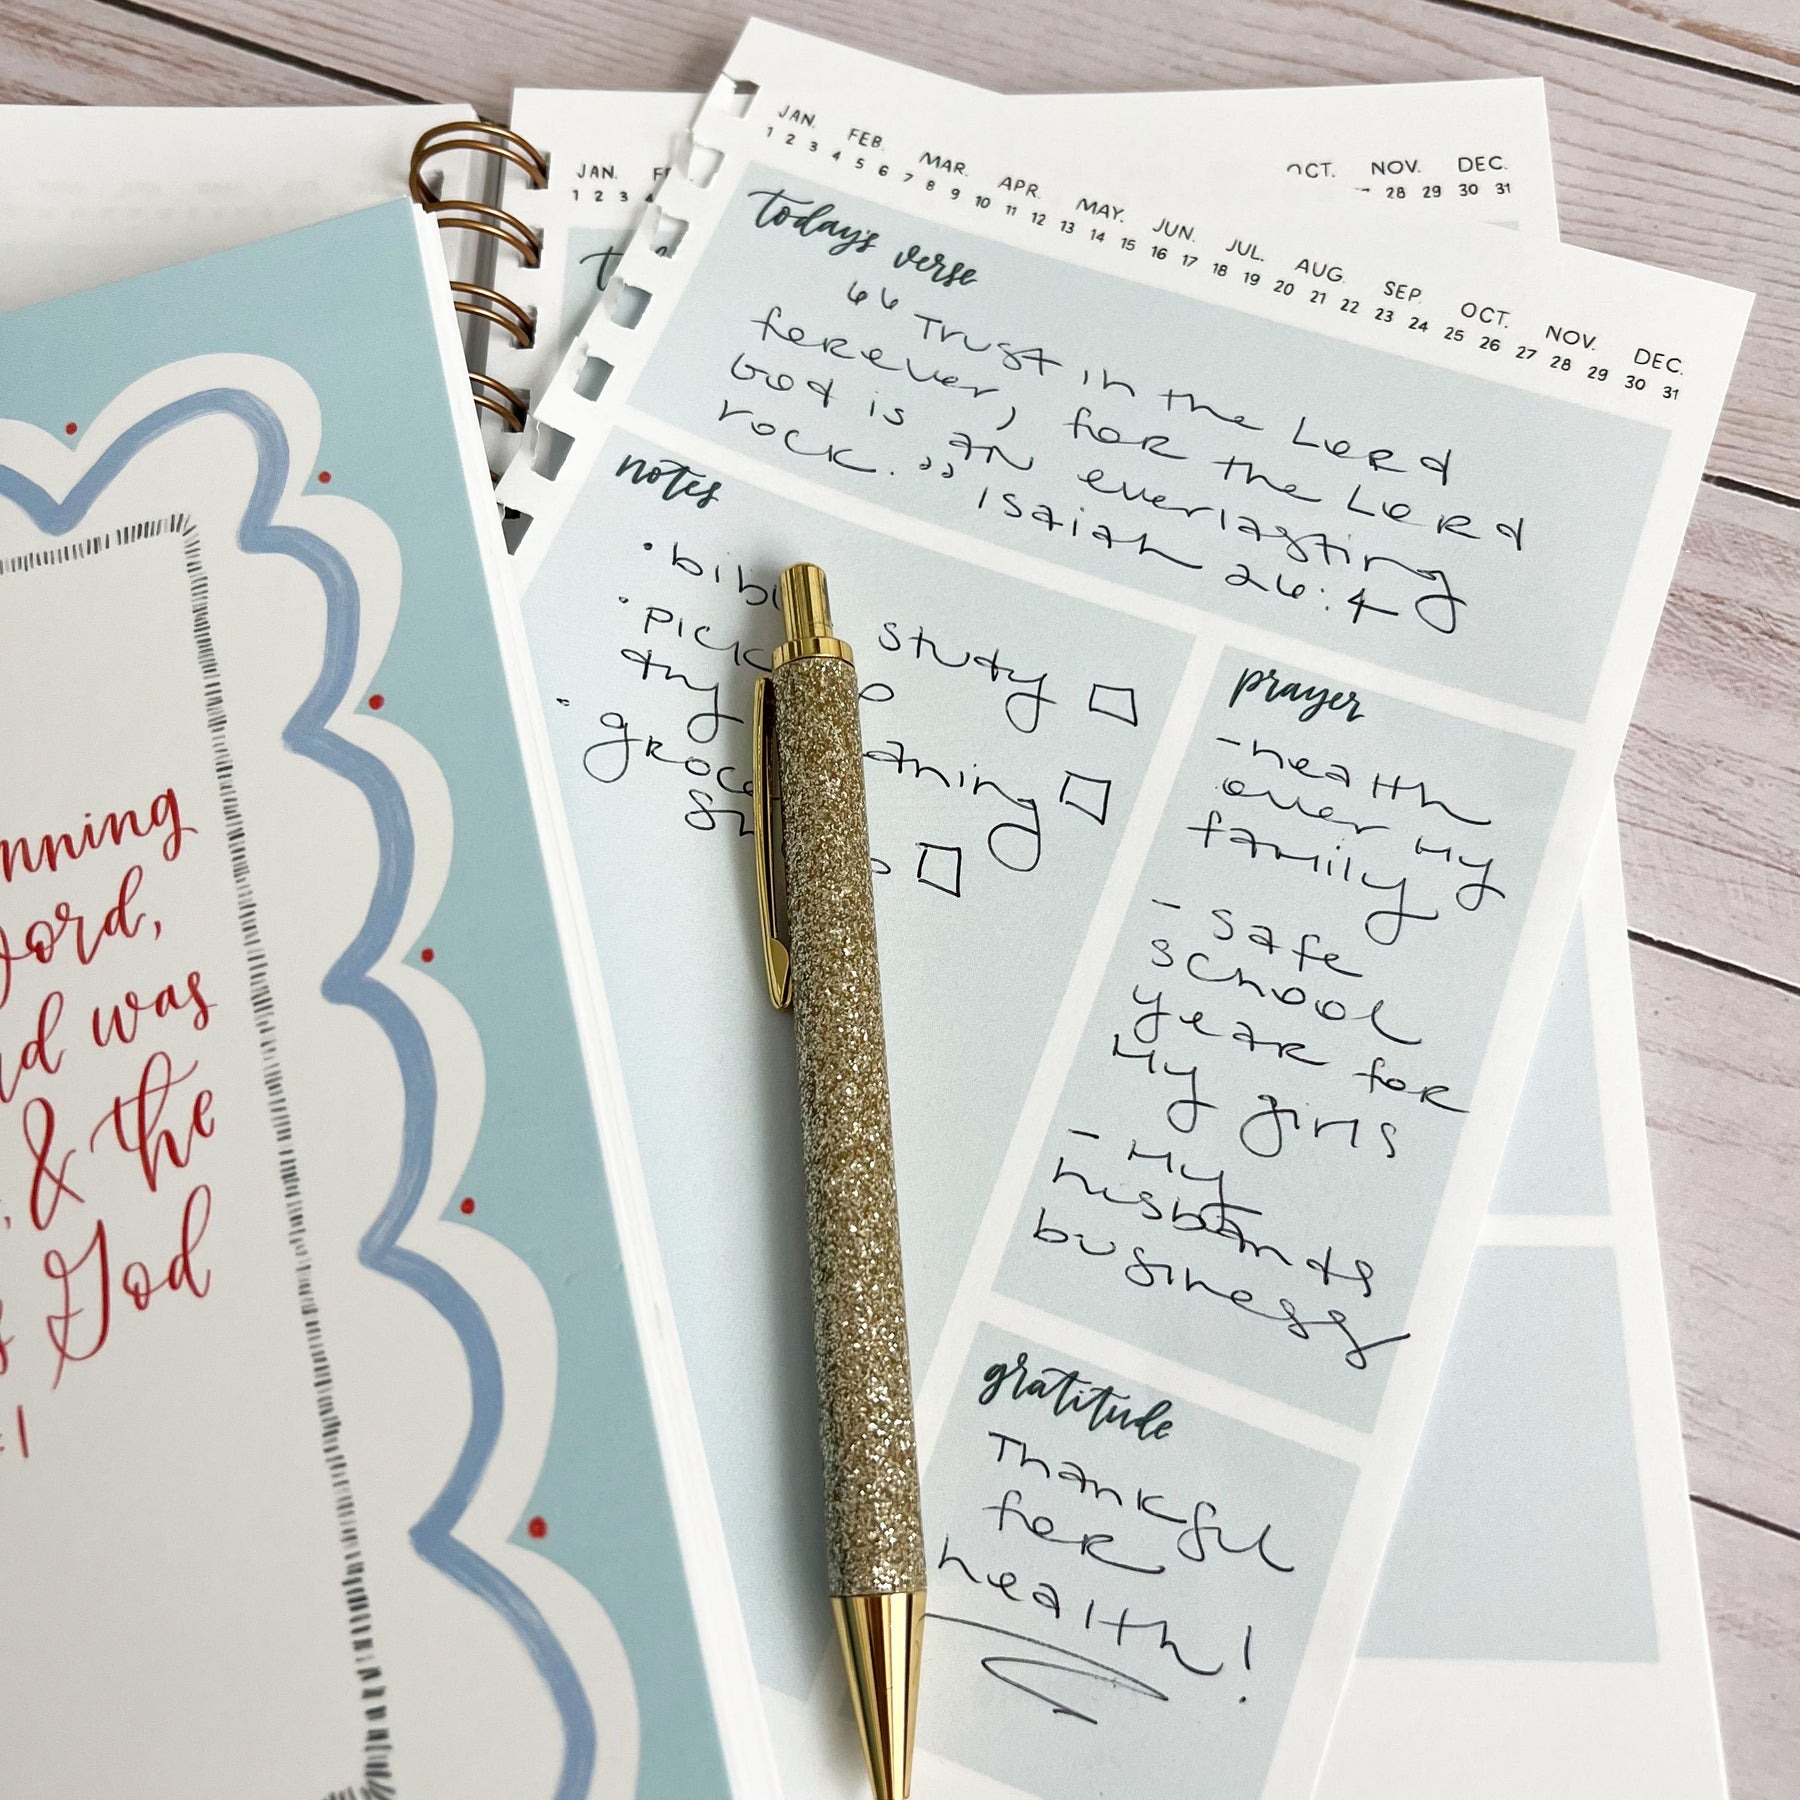 JAN. FEB. MAR. APR. MAY. JUN. JUL. AUG. SEP. OCT. NOV. DEC.
1 2 3 4 5 6 7 8 9 10 11 12 13 14 15 16 17 18 19 20 21 22 23 24 25 26 27 28 29 30 31
today's verse
“Trust in the Lord
forever, for the Lord
God is an everlasting
rock.” Isaiah 26:4
notes
• study
•
• aning
prayer
- health
over my
family
- safe
school
year for
my girls
- My
husbands
business
gratitude
Thankful
for
health!
JAN.
1 2 3 4
NOV. DEC.
28 29 30 31
nning
ord,
rd was
& the
God
:1